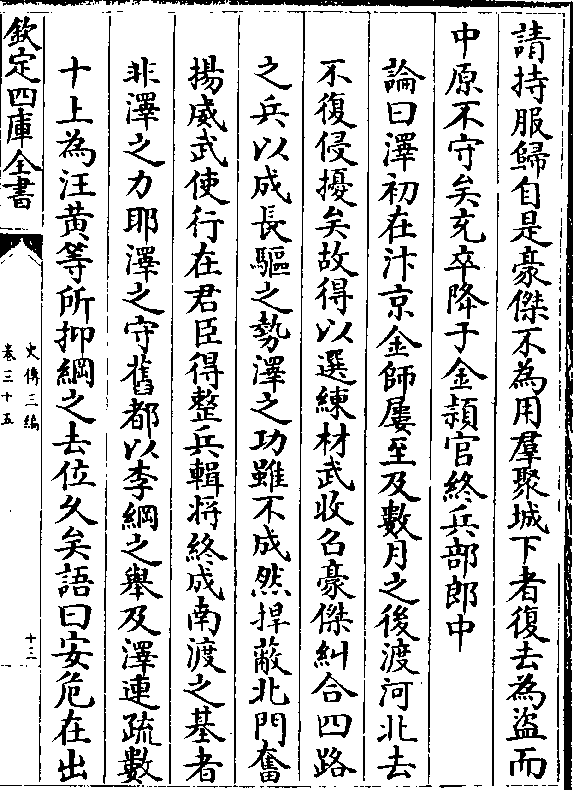 請持服歸自是豪傑不為用羣聚城下者復去為盜而
中原不守矣充卒降于金頴官終兵部郎中
論曰澤初在汴京金師屢至及數月之後渡河北去
不復侵擾矣故得以選練材武收召豪傑糾合四路
之兵以成長驅之勢澤之功雖不成然捍蔽北門奮
揚威武使行在君臣得整兵輯將終成南渡之基者
非澤之力耶澤之守舊都以李綱之舉及澤連疏數
十上為汪黃等所抑綱之去位久矣語曰安危在出
欽定四庫全書
史傳三編
卷三十五
十三